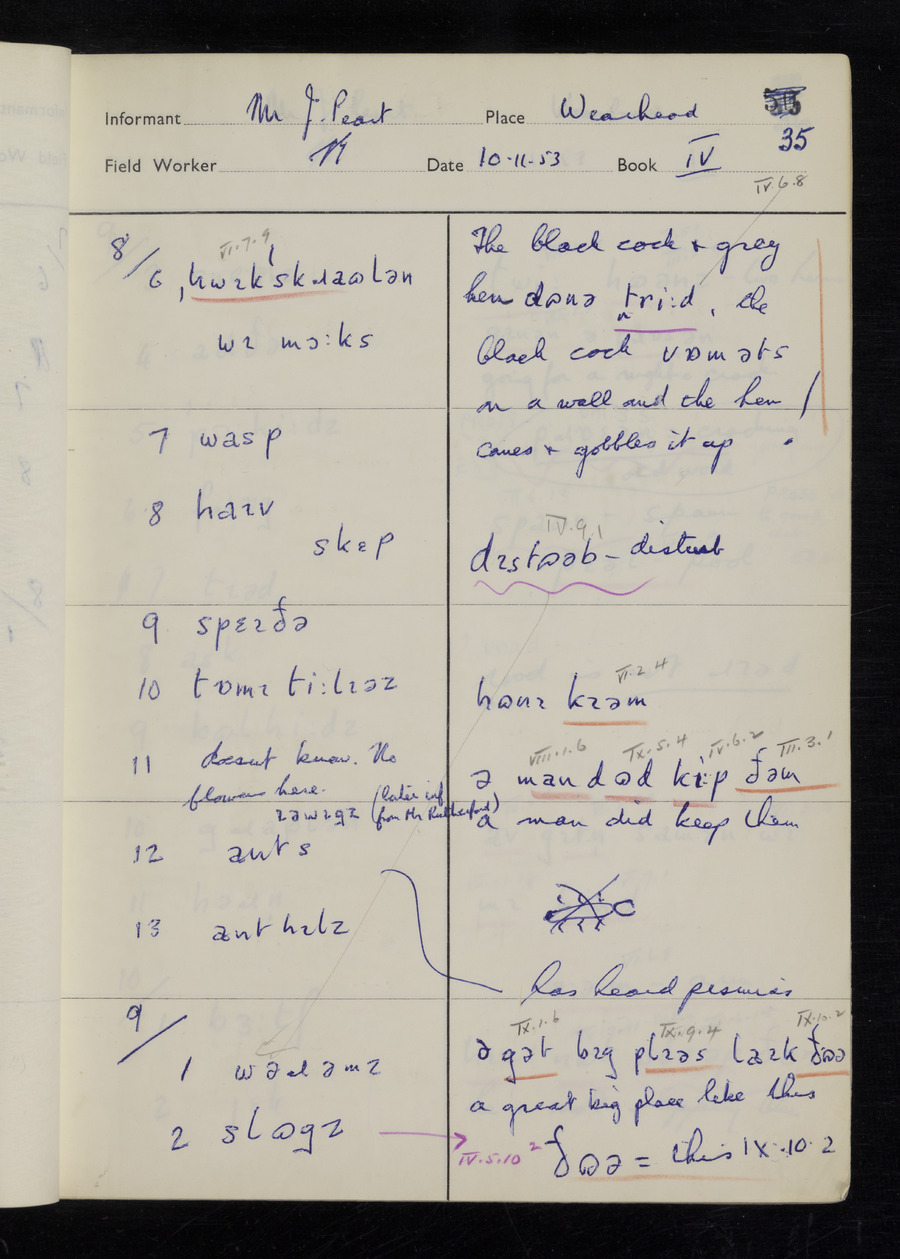 Informant Mr J. Peart Place Wearhead
35
Field Worker Date 10-11-53 Book IV
IV.6.8
8/
VI.7.9
6
wɪ mɔ:ks
7 wasp
8 haɪv
skɛp
9 spɛɪðə
10 tɒmɪ ti:lɪəz
11 doesnt know. No
flowers here.
(later inf
from Mr Rutherford)
12 ants
13 ant hɪlz
9/
1
2 slɷgz
The black cock & grey
hen dɷnə tri:d, the
black cock vɒməts
on a wall and the hen /
comes & gobbles it up
IV.9.1
dɪstɷəb - disturb
VI.2.4
kɪəm
VIII.1.6 IX.5.4 IV.6.2 III.3.1
ə man dəd ki:p ðəm
a man did keep them
has heard pismires
IX.1.6 IX.9.4 IX.10.2
ə gət bɪg plɪəs laɪk ðɷə
a great big place like this
IV.5.10 2 ðɷə = this IX.10.2